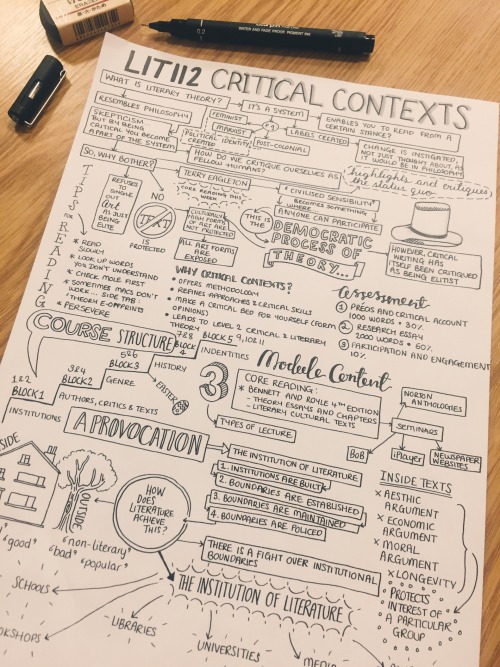 0.2 WATER AND FADE PROOF PIGMENT INK
LIT112 CRITICAL CONTEXTS
WHAT IS LITERARY THEORY?
IT'S A SYSTEM
ENABLES YOU TO READ FROM A
CERTAIN STANCE?
RESEMBLES PHILOSOPHY
FEMINIST
MARXIST
POST-COLONIAL
LABELS CREATED
SKEPTICISM
BUT BY BEING
CRITICAL YOU BECOME
A PART OF THE SYSTEM
POLITICAL IDENTITY
CREATED
CHANGE IS INSTIGATED,
NOT JUST THOUGHT ABOUT, AS
IT WOULD BE IN PHILOSOPHY
HOW DO WE CRITIQUE OURSELVES AS
FELLOW HUMANS?
highlights and critiques
the status quo
SO, WHY BOTHER?
TERRY EAGLETON
CORE READING THIS
WEEK
"CIVILISED SENSIBILITY"
BECOMES SOMETHING
WHERE
ANYONE CAN PARTICIPATE
TIPS FOR READING
REFUSES
TO
SINGLE
OUT
Art
AS JUST
BEING
ELITE
NO
TEXT
IS PROTECTED
CULTURALLY
HIGH FORMS
ART ARE
NOT PROTECTED
ALL ART FORMS
ARE
EXPOSED
THIS IS
THE
DEMOCRATIC
PROCESS OF
THEORY...
HOWEVER, CRITICAL
WRITING HAS
ITSELF BEEN CRITIQUED
AS BEING ELITIST
* READ
SLOWLY
* LOOK UP WORDS
YOU DON'T UNDERSTAND
* CHECK MOLE FIRST
* SOMETIMES MACS DON'T
WORK... SIDE TAB:
THEORY E-OFFPRINTS
* PERSEVERE
WHY CRITICAL CONTEXTS?
• OFFERS METHODOLOGY
• REFINES APPROACHES & CRITICAL SKILLS
• MAKE A CRITICAL BED FOR YOURSELF (FORM
OPINIONS)
• LEADS TO LEVEL 2 CRITICAL & LITERARY
THEORY
assessment
① PRECIS AND CRITICAL ACCOUNT
1000 WORDS • 30%
② RESEARCH ESSAY
2000 WORDS • 60%
③ PARTICIPATION AND ENGAGEMENT
10%
COURSE STRUCTURE
1 & 2
BLOCK 1
INSTITUTIONS
3 & 4
BLOCK 2
AUTHORS, CRITICS & TEXTS
5 & 6
BLOCK 3
GENRE
7 & 8
BLOCK
4
HISTORY
EASTER
BLOCK 5 9, 10 & 11
INDENTITIES
3
Module Content
CORE READING:
* BENNETT AND ROYLE 4TH EDITION
- THEORY ESSAYS AND CHAPTERS
- LITERARY CULTURAL TEXTS
NORTON
ANTHOLOGIES
TYPES OF LECTURE
SEMINARS
BoB
iPlayer
NEWSPAPER
WEBSITES
A PROVOCATION
THE INSTITUTION OF LITERATURE
1. INSTITUTIONS ARE BUILT
2. BOUNDARIES ARE ESTABLISHED
3. BOUNDARIES ARE MAINTAINED
4. BOUNDARIES ARE POLICED
THERE IS A FIGHT OVER INSTITUTIONAL
BOUNDARIES
INSIDE TEXTS
× AESTHIC
ARGUMENT
× ECONOMIC
ARGUMENT
× MORAL
ARGUMENT
× LONGEVITY
PROTECTS
INTEREST OF
A PARTICULAR
GROUP
OUTSIDE
HOW
DOES
LITERATURE
ACHIEVE
THIS?
"good"
"bad"
"non-literary"
"popular"
THE INSTITUTION OF LITERATURE
SCHOOLS
LIBRARIES
UNIVERSITIES